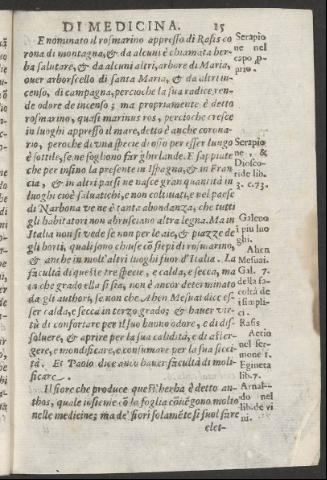 DI MEDICINA. 25
E nominato il rosmarino appresso di Rasis co
rona di montagna, & da alcuni è chiamata her-
ba salutare, & da alcuni altri, arbore di Maria,
ouer arborscello di santa Maria, & da altri in-
censo, di campagna, percioche la sua radice ren-
de odore de incenso; ma propriamente è detto
rosmarino, quasi marinus ros, percioche cresce
in luoghi appresso il mare, detto è anche corona-
rio, peroche di una specie di esso per esser lungo
è sottile, se ne sogliono far ghirlande. E sappiate
che per insino la presente in Ispagna, & in Fran-
cia, & in altri paesi ne nasce gran quantità in
luoghi cioè saluatichi, e non coltiuati, e nel paese
di Narbona ve ne è tanta abondanza, che tutti
gli habitatori non abrusciano altra legna. Ma in
Italia non si vede se non per le aie, & piazze de
gli horti, quali sono chiuse cõ siepi di rosmarino,
& anche in molt'altri luoghi fuor d'Italia. La
facultà di queste tre specie, e calda, e secca, ma
in che grado ella si sia, non è ancor determinato
da gli authori, se non che Ahen Mesuai dice es-
ser calda, e secca in terzo grado; & hauer vir-
tù di confortare per il suo buono odore, e di dis-
soluere, & aprire per la sua calidità, e di aster-
gere, e mondificare, e consumare per la sua sicci-
tà. Et Paolo dice anco hauer facultà di molti-
ficare.
Il fiore che produce quest'herba è detto an-
thos, quale insieme cõ la foglia cõuẽgono molto
nelle medicine; ma de' fiori solamẽte si suol fare
elet-
Serapio
ne nel
capo ꝓ-
prio.
Serapio
ne, &
Diosco-
ride lib.
3. c. 73.
Galeno
i piu luo
ghi.
Ahen
Mesuai.
Gal. 7.
della fa-
coltà de
i simpli-
ci.
Rasis
Aetio
nel ser-
mone 1.
Egineta
lib. 7.
Arnal-
do nel
lib. de vi
ni.